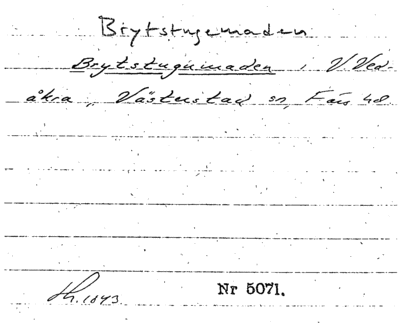 Brytstugemaden
Brytstugumaden i V. Ved-
åkra, Västerstad sn, Färs hd
h. 1843.
Nr 5071.